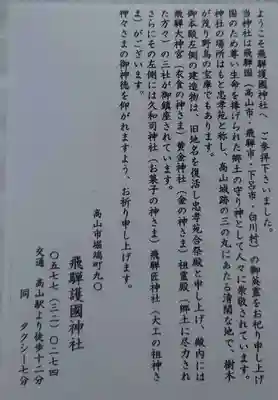 ようこそ飛騨護國神社へ ご参拝下さいました。
当神社は飛騨国(高山市・飛騨市・下呂市・白川村)の御英霊をお祀り申し上げ
国のため尊い生命を捧げられた郷土の守り神として人々に崇敬されています。
神社の場所はもと忠孝苑と称し、高山城跡の三の丸にあたる清閑な地で、樹木
が茂り野鳥の宝庫でもあります。
御本殿左側の建造物は、旧地名を復活し忠孝苑合祭殿と申し上げ、殿内には
飛騨大神宮(衣食の神さま)黄金神社(金の神さま)祖霊殿(郷土に尽力され
た方々)の三社が御鎮座されています。
さらにその左側には久和司神社(お菓子の神さま)飛騨匠神社(大工の祖神さ
ま)がございます。
神々さまの御神徳を仰がれますよう、お祈り申し上げます。
高山市堀端町九〇
飛騨護國神社
〇五七七(三二)〇二七四
交通 高山駅より徒歩十二分
同 タクシー七分